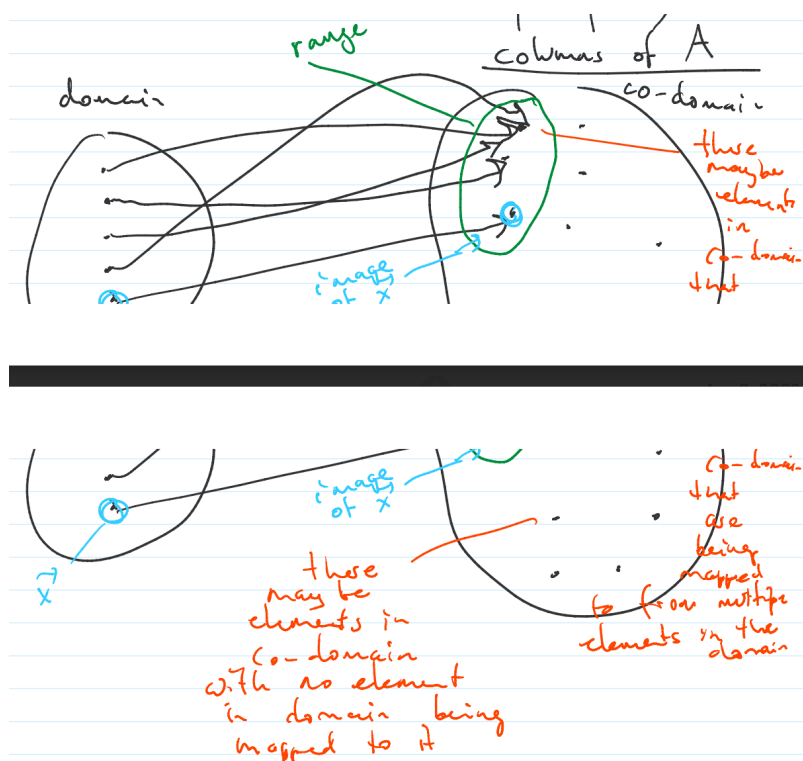 range
columns of A
domain
co-domain
there
may be
elements
in
co-domain
that
image
of x
co-domain
that
are
being
mapped
to from multiple
elements in the
domain
image
of x
x⃗
there
may be
elements in
co-domain
with no element
in domain being
mapped to it